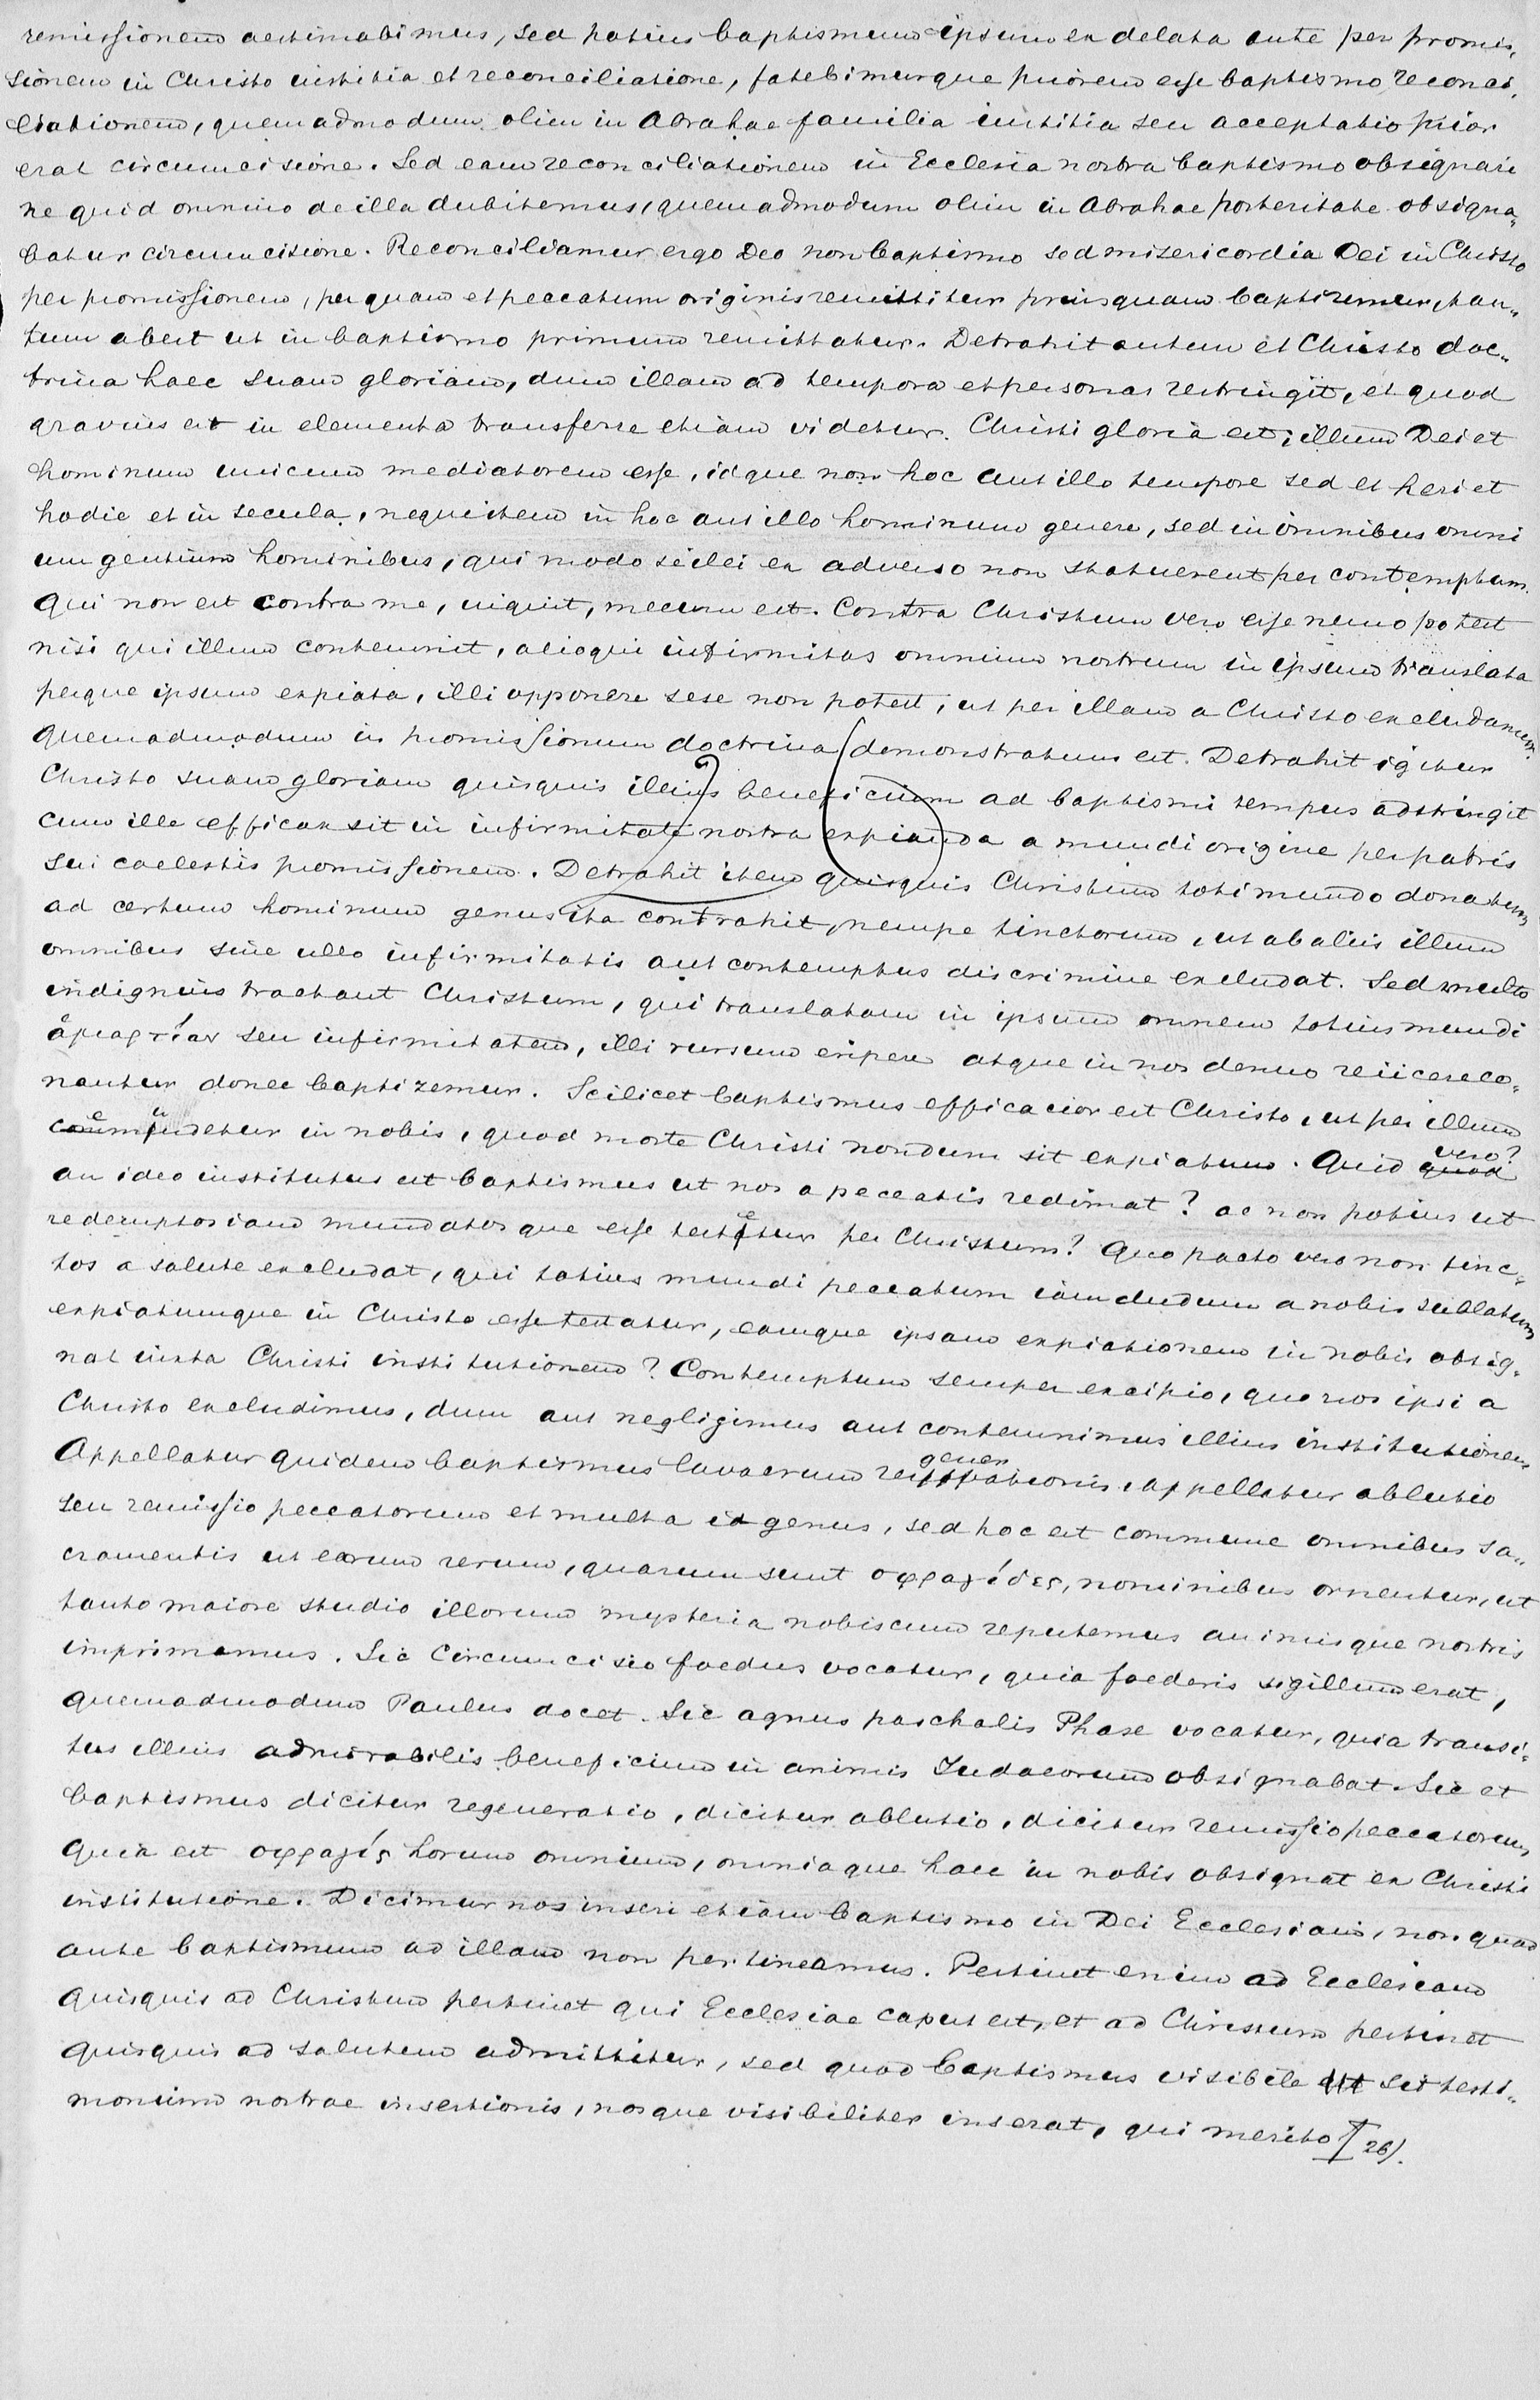 remissionem aestimabimus, sed potius baptismum ipsum ex delata ante per promis-
sionem in Christo iustitia et reconciliatione, fatebimurque priorem esse baptismo reconci-
liationem, quemadmodum olim in Abrahae familia iustitia seu acceptatio prior
erat circumcisione. Sed eam reconciliationem in Ecclesia nostra baptismo obsignari
ne quid omnino de illa dubitemus, quemadmodum olim in Abrahae posteritate obsigna-
batur circumcisione. Reconciliamur ergo Deo non baptismo sed misericordia Dei in Christo
per promissionem, per quam et peccatum originis remittitur priusquam baptizemur, tan-
tum abest ut in baptismo primum remittatur. Detrahit autem et Christo doc-
trina haec suam gloriam, dum illam ad tempora et personas restringit, et quod
gravius est in elementa transferre etiam videtur. Christi gloria est, illum Dei et
hominum unicum mediatorem esse, idque non hoc aut illo tempore sed et heri et
hodie et in secula, neque item in hoc aut illo hominum genere, sed in omnibus omni
um gentium hominibus, qui modo sese illi ex adverso non statuerent per contemptum.
Qui non est contra me, inquit, mecum est. Contra Christum vero esse nemo potest
nisi qui illum contemnit, alioqui infirmitas omnium nostrum in ipsum translata
perque ipsum expiata, illi opponere sese non potest, ut per illam a Christo excludamur.
Quemadmodum in promissionum doctrina demonstratum est. Detrahit igitur
Christo suam gloriam quisquis illius beneficium ad baptismi tempus adstringit
cum ille efficax sit in infirmitate nostra expianda a mundi origine per patris
sui caelestis promissionem. Detrahit item quisquis Christum toti mundo donatum
ad certum hominum genus ita contrahit, nempe tinctorum, ut ab aliis illum
omnibus sine ullo infirmitatis aut contemptus discrimine excludat. Sed multo
indignius tractant Christum, qui translatam in ipsum omnem totius mundi
ἁμαρτίαν seu infirmitatem, illi rursum eripere atque in nos denuo reiicere co-
nantur donec baptizemur. Scilicet baptismus efficacior est Christo, ut per illum
emundetur in nobis, quod morte Christi nondum sit expiatum. Quid quod vero?
an ideo institutus est baptismus ut nos a peccatis redimat? ac non potius ut
redemptos iam mundatosque esse testetur per Christum? Quo pacto vero non tinc-
tos a salute excludat, qui totius mundi peccatum iamdudum a nobis sublatum
expiatumque in Christo esse testatur, eamque ipsam expiationem in nobis obsig-
nat iuxta Christi institutionem? Contemptum semper excipio, quo nos ipsi a
Christo excludimus, dum aut negligimus aut contemnimus illius institutionem
Appellatur quidem baptismus lavacrum regenerationis, appellatur ablutio
seu remissio peccatorum et multa id genus, sed hoc est commune omnibus sa-
cramentis ut earum rerum, quarum sunt σφραγίδες, nominibus ornentur, ut
tanto maiore studio illorum mysteria nobiscum reputemus animisque nostris
imprimamus. Sic Circumcisio foedus vocatur, quia foederis sigillum erat,
quemadmodum Paulus docet. Sic agnus paschalis Phase vocatur, quia transi-
tus illius admirabilis beneficium in animis Iudaeorum obsignabat. Sic et
baptismus dicitur regeneratio, dicitur ablutio, dicitur remissio peccatorum,
quia est σφραγίς horum omnium, omniaque haec in nobis obsignat ex Christi
institutione. Dicimur nos inseri etiam baptismo in Dei Ecclesiam, non quod
ante baptismum ad illam non pertineamus. Pertinet enim ad Ecclesiam
quisquis ad Christum pertinet qui Ecclesiae caput est, et ad Christum pertinet
quisquis ad salutem admittitur, sed quod baptismus visibile sit testi-
monium nostrae insertionis, nosque visibiliter inserat, qui merito 26).